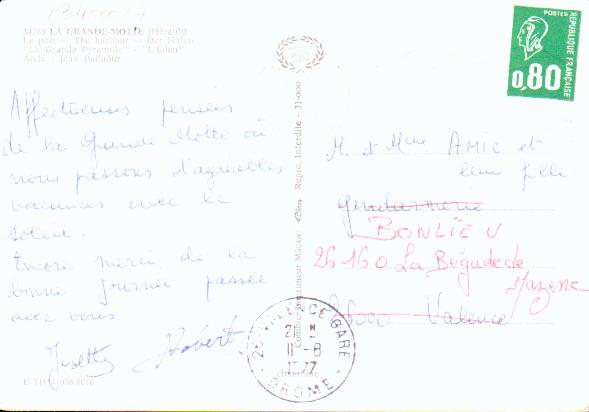 34280 LA GRANDE-MOTTE (Hérault)
Le port - The harbour - Der Hafen
"La Grande Pyramide" - "L'Eden"
Arch : Jean Balladur
POSTES
REPUBLIQUE FRANÇAISE
0,80
Affectueuses pensées
de la Grande Motte où
nous passons d'agréables
vacances avec le
soleil.
Encore merci de la
bonne journée passée
avec vous
Josette Robert
M. et Mme AMIC et
leur fille
Gendarmerie
BONLIEU
26160 La Bégude de
Mazenc
26000 Valence
Repro. Interdite - 31-000
26 VALENCE GARE
DROME